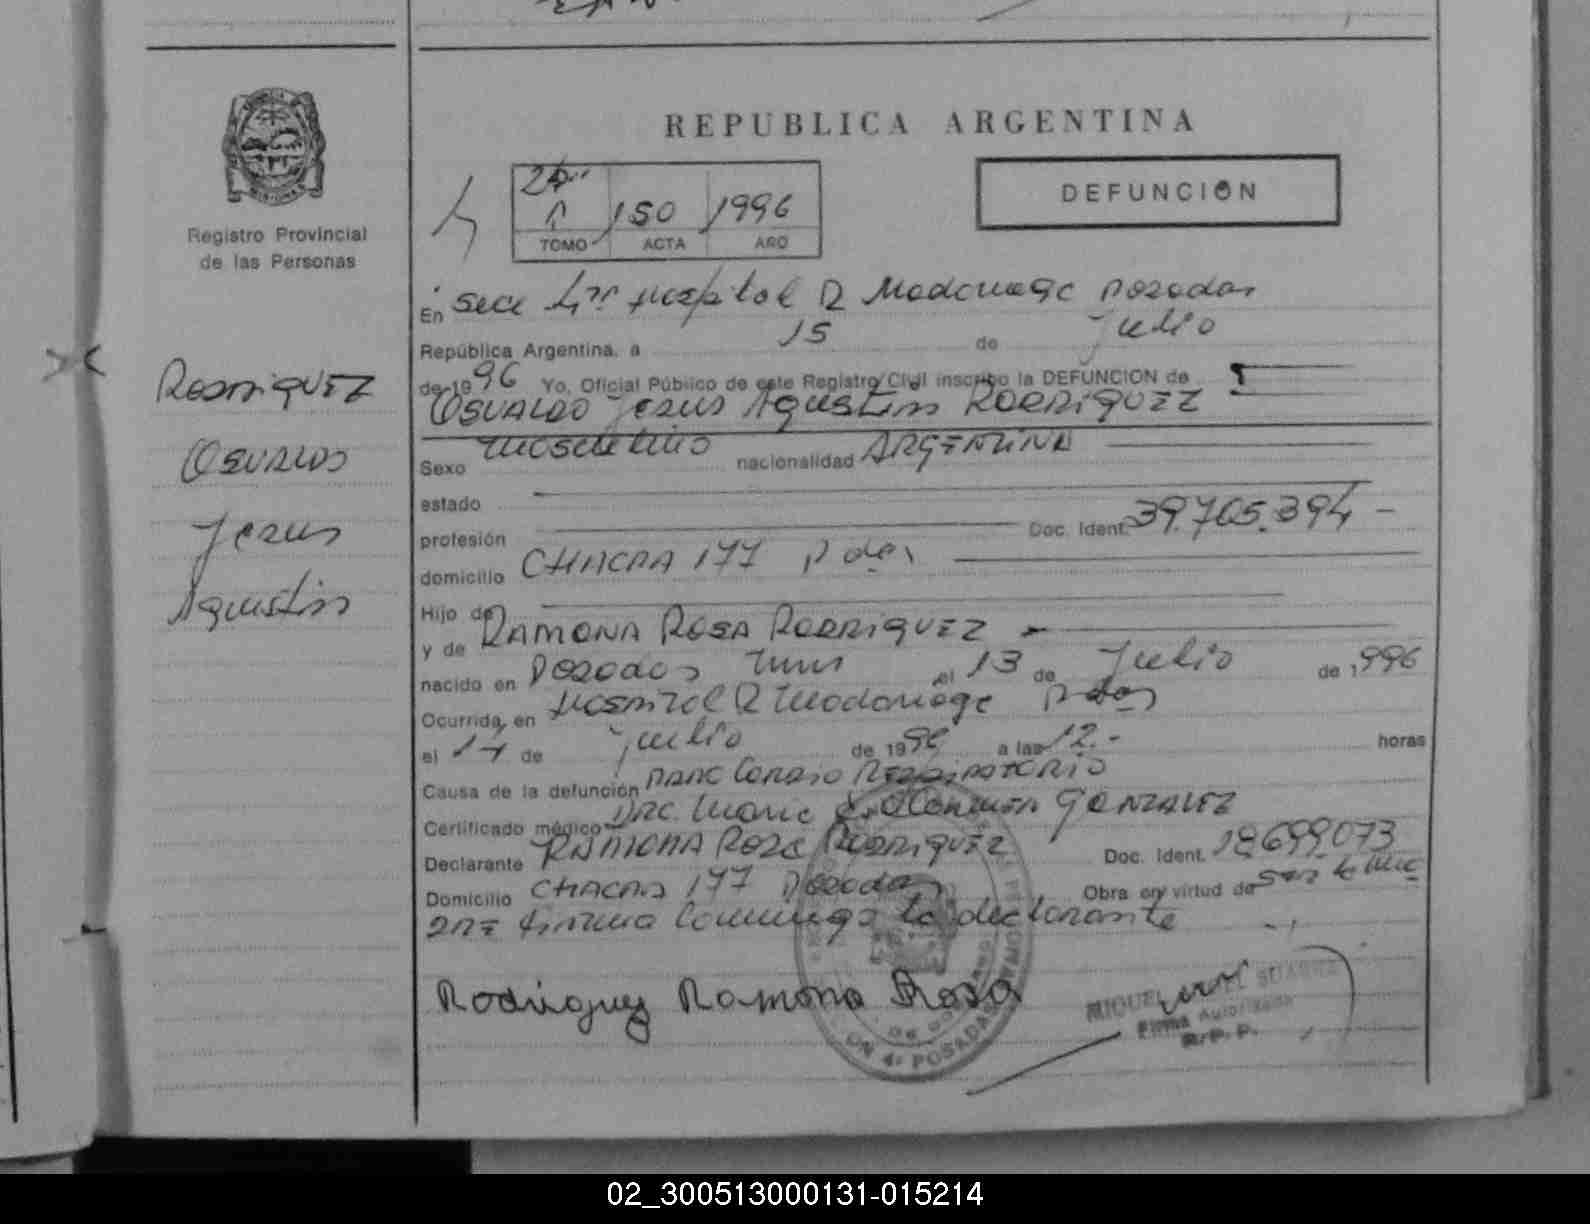 REPUBLICA ARGENTINA
DEFUNCION
150 1996
TOMO ACTA AÑO
Registro Provincial
de las Personas
RODRIGUEZ
OSVALDO
Jesus
Agustin
En Secc 4ta Hospital R Madariaga Posadas
República Argentina, a 15 de Julio
de 1996 Yo, Oficial Público de este Registro Civil inscribo la DEFUNCION de
OSVALDO Jesus Agustin RODRIGUEZ
Sexo Masculino nacionalidad ARGENTINA
estado
profesión Doc. Ident. 39.705.394 -
domicilio CHACRA 177 Pdas
Hijo de
y de RAMONA ROSA RODRIGUEZ
nacido en Posadas Mnes el 13 de Julio de 1996
Ocurrida en Hospital R Madariaga Pdas
el 14 de Julio de 1996 a las 12.- horas
Causa de la defunción Paro Cardio RESPIRATORIO
Certificado médico Dra. Maria GONZALEZ
Declarante RAMONA ROSA RODRIGUEZ Doc. Ident. 18699073
Domicilio CHACRA 177 Posadas Obra en virtud de ser la madre
firma conmigo la declarante
Rodriguez Ramona Rosa
MIGUEL SUAREZ
Firma Autorizada
R.P.P.
ON 4ª POSADAS
02_300513000131-015214